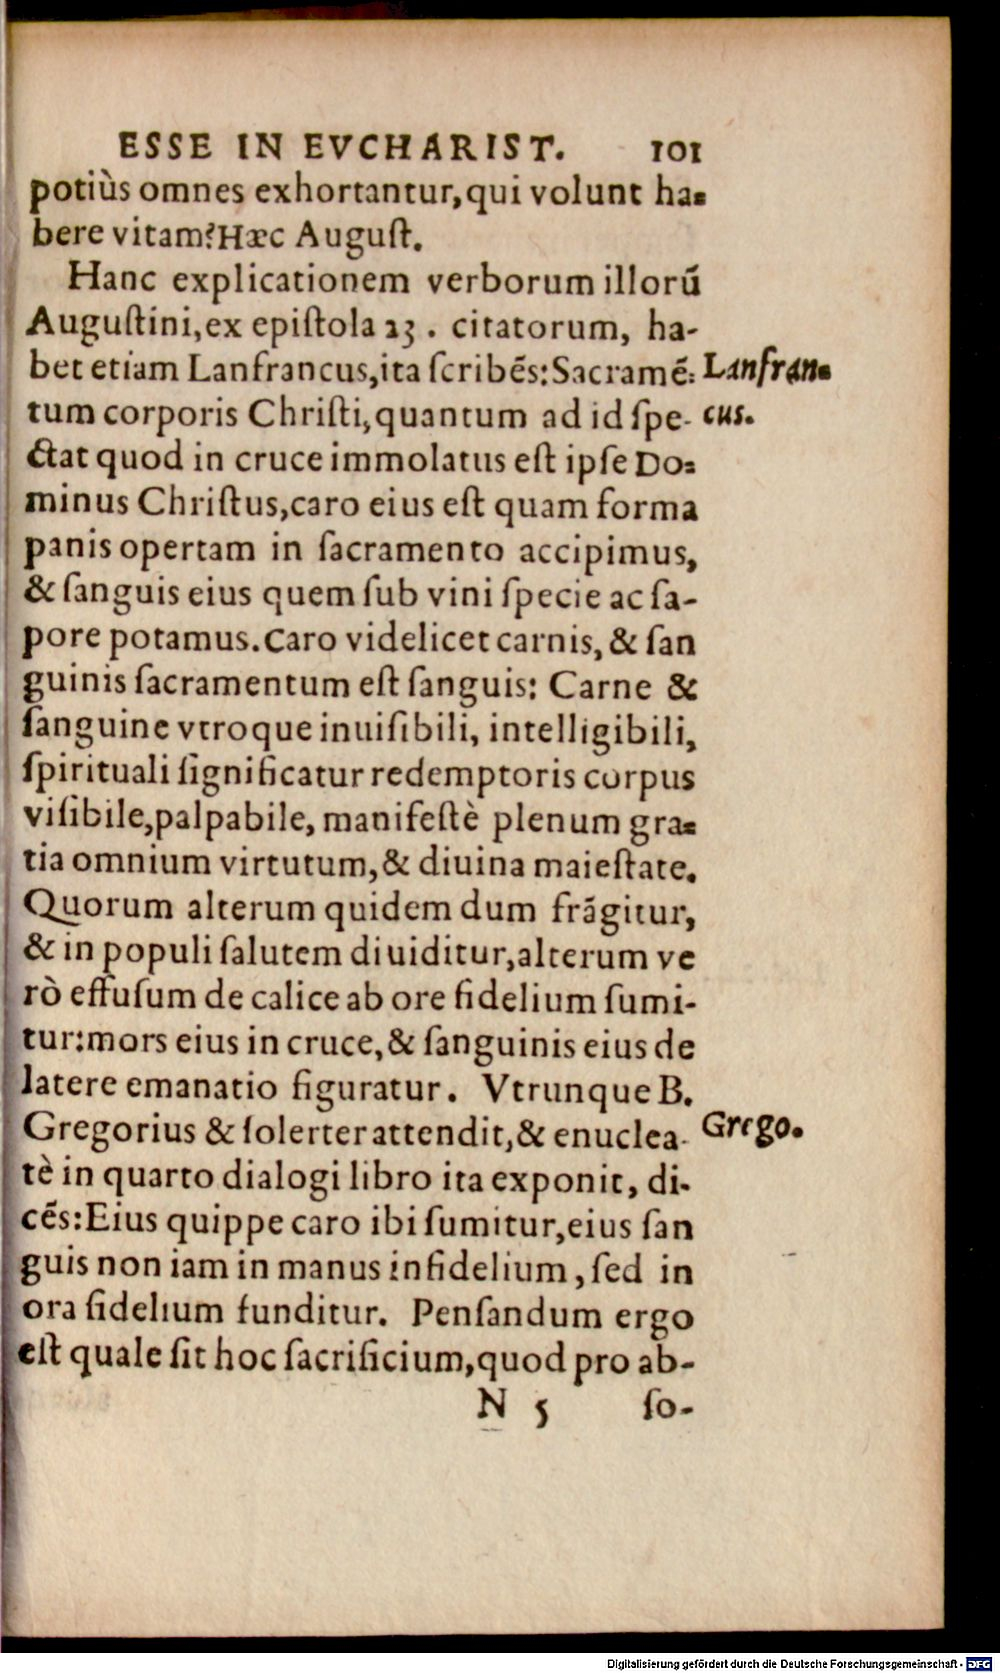 ESSE IN EVCHARIST. 101
potiùs omnes exhortantur, qui volunt ha-
bere vitam? Hæc Auguſt.
Hanc explicationem verborum illorū
Auguſtini, ex epiſtola 23. citatorum, ha-
bet etiam Lanfrancus, ita ſcribēs: Sacramē- Lanfran-
tum corporis Chriſti, quantum ad id ſpe- cus.
ctat quod in cruce immolatus eſt ipſe Do-
minus Chriſtus, caro eius eſt quam forma
panis opertam in ſacramento accipimus,
& ſanguis eius quem ſub vini ſpecie ac ſa-
pore potamus. Caro videlicet carnis, & ſan
guinis ſacramentum eſt ſanguis: Carne &
ſanguine vtroque inuiſibili, intelligibili,
ſpirituali ſignificatur redemptoris corpus
viſibile, palpabile, manifeſtè plenum gra-
tia omnium virtutum, & diuina maieſtate.
Quorum alterum quidem dum frāgitur,
& in populi ſalutem diuiditur, alterum ve
rò effuſum de calice ab ore fidelium ſumi-
tur: mors eius in cruce, & ſanguinis eius de
latere emanatio figuratur. Vtrunque B.
Gregorius & ſolerter attendit, & enuclea- Grego.
tè in quarto dialogi libro ita exponit, di-
cēs: Eius quippe caro ibi ſumitur, eius ſan
guis non iam in manus infidelium, ſed in
ora fidelium funditur. Penſandum ergo
eſt quale ſit hoc ſacrificium, quod pro ab-
N 5 ſo-
Digitalisierung gefördert durch die Deutsche Forschungsgemeinschaft - DFG